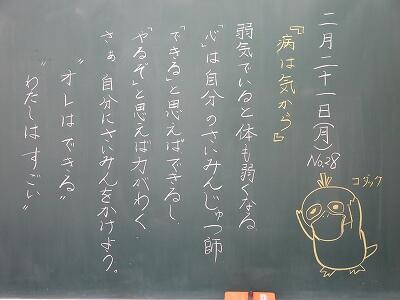 二月二十一日(月) No.28
『病は気から』
弱気でいると体も弱くなる
「心」は自分のさいみんじゅつ師
「できる」と思えばできるし、
「やるぞ」と思えば力がわく
さぁ自分にさいみんをかけよう。
"オレはできる"
"わたしはすごい"
コダック